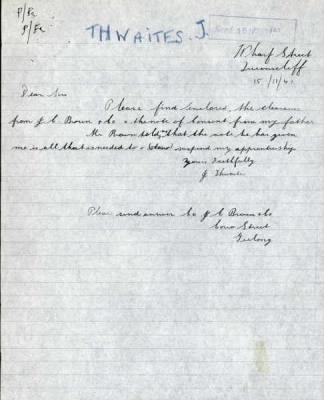 P/Fr
P/Fr
THWAITES. J.
Wharf Street
Queenscliff
15/11/41
Dear Sir
Please find enclosed, the clearance
from J C Brown & Co & the note of consent from my father
Mr Brown told me that the note he has given
me is all that is needed to suspend my apprenticeship
Yours Faithfully
J Thwaites
Please send answer to J C Brown & Co
Corio Street
Geelong